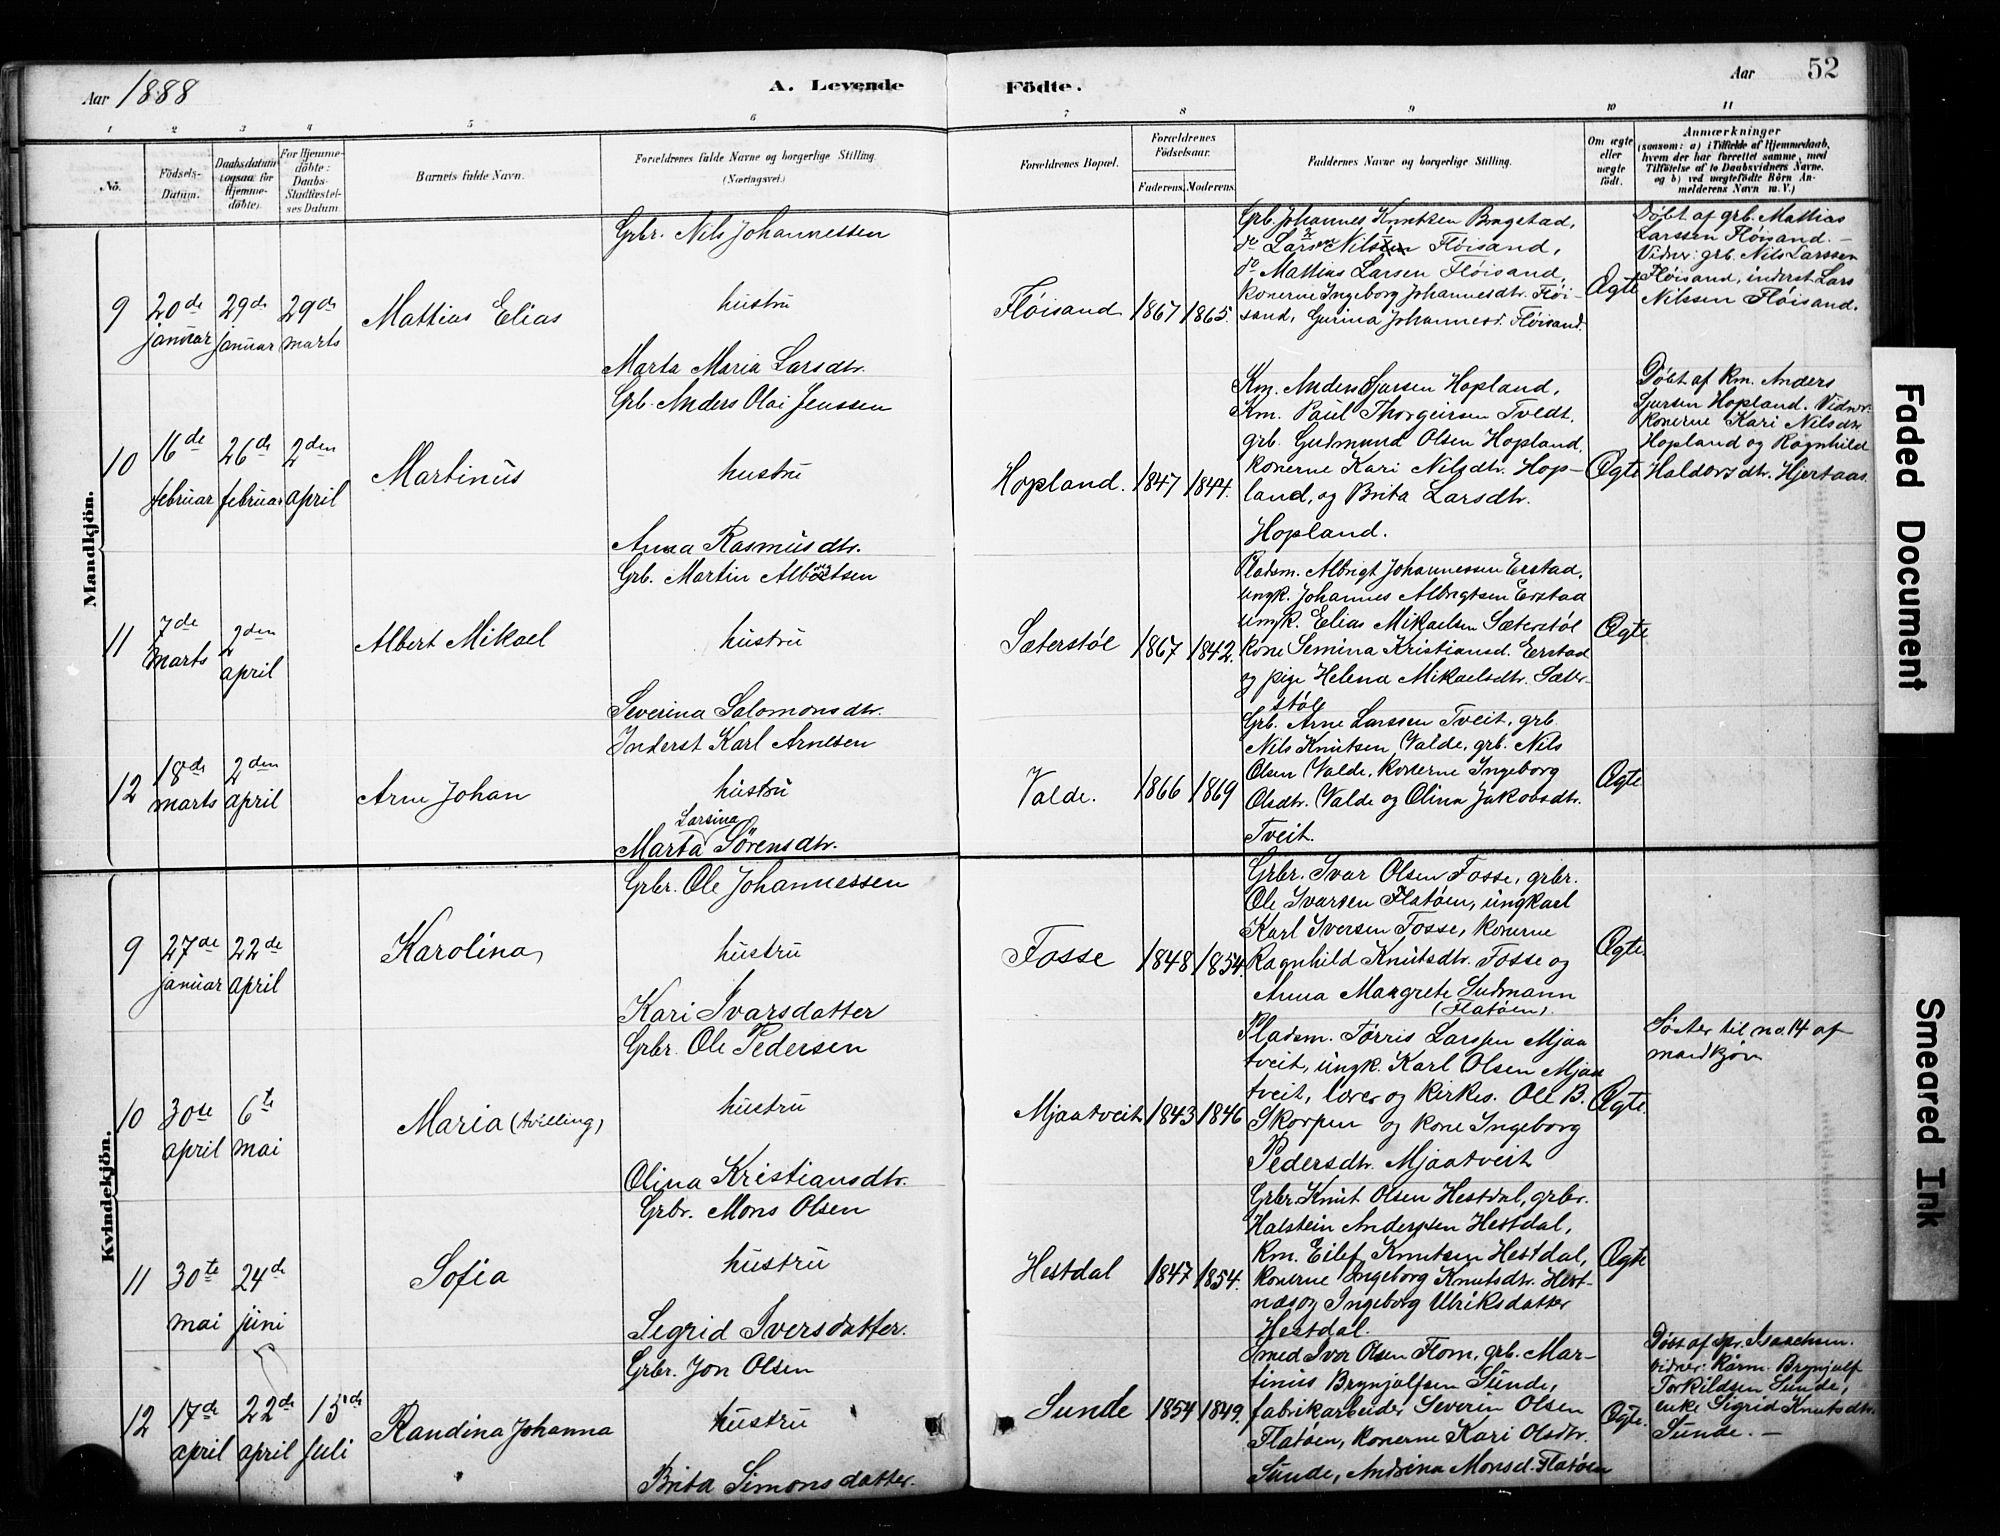 Aar 1888
A. Levende
Födte.
Aar
52
1
2
3
4
5
6
7
8
9
10
11
No.
Födsels-
Datum.
Daabsdatum
(ogsaa for
Hjemme-
döbte).
For Hjemme-
döbte:
Daabs-
Stadfæstel-
ses Datum
Barnets fulde Navn.
Forældrenes fulde Navne og borgerlige Stilling.
(Næringsvei.)
Forældrenes Bopæl.
Forældrenes
Födselsaar.
Faderens.
Moderens.
Faddernes Navne og borgerlige Stilling.
Om ægte
eller
uægte
født.
Anmærkninger
(saasom: a) i Tilfælde af Hjemmedaab,
hvem der har forrettet samme, med
Tilföielse af to Daabsvidners Navne.
og b) ved uægtefödte Börn An-
melderens Navn m. V.)
Mandkjön.
9
20de
januar
29de
januar
29de
marts
Mattias Elias
Grbr. Nils Johannessen
hustru
Marta Maria Larsdtr.
Fløisand
1867
1865.
Grb. Johannes Knutsen Brugstad,
do Lars Nilsen Fløisand,
do Mattias Larsen Fløisand,
konerne Ingeborg Johannesdtr. Fløi-
sand, Gurina Johannesd. Fløisand.
Ægte
Døbt af grb. Mattias
Larssen Fløisand. –
Vidner: grb. Nils Larssen
Fløisand, inderst Lars
Nilssen Fløisand.
10
16de
februar
26de
februar
2den
april
Martinus
Grb. Anders Olai Jenssen
hustru
Anna Rasmusdtr.
Hopland.
1847
1844.
Km. Anders Sjursen Hopland,
Km. Paul Thorgeirsen Tvedt,
grb. Gudmund Olsen Hopland,
konerne Kari Nilsdtr. Hop-
land, og Brita Larsdtr.
Hopland.
Ægte
Døbt af Km. Anders
Sjursen Hopland. Vidner:
konerne Kari Nilsdtr.
Hopland og Ragnhild
Haldorsdtr. Hjertaas.
11
7de
marts
2den
april
Albert Mikael
Grb. Martin Albrigtsen
hustru
Severina Salomonsdtr.
Sæterstøl
1867
1842.
Pladsm. Albrigt Johannessen Erstad,
ungk. Johannes Albrigtsen Erstad
ungk. Elias Mikaelsen Sæterstøl
kone Semina Kristiansd. Erstad
og pige Helena Mikaelsdtr. Sæter-
støl
Ægte
12
18de
marts
2den
april
Arne Johan
Inderst Karl Arnesen
hustru
Larsina
Marta Sörensdtr.
Valde.
1866
1869
Grb. Arne Larssen Tveit, grb.
Nils Knutsen Valde, grb. Nils
Olsen Valde, konerne Ingeborg
Olsdtr. Valde og Olina Jakobsdtr.
Tveit.
Ægte
Kvindekjön.
9
27de
januar
22de
april
Karolina
Grbr. Ole Johannessen
hustru
Kari Ivarsdatter
Fosse
1848
1854
Grbr. Ivar Olsen Fosse, grbr.
Ole Ivarsen Flatøen, ungkarl
Karl Iversen Fosse, konerne
Ragnhild Knutsdtr. Fosse og
Anna Margrete Sudmann
(Flatøen).
Ægte.
10
30te
april
6te
mai
Maria (tvilling)
Grbr. Ole Pedersen
hustru
Olina Kristiansdtr.
Mjaatveit
1843
1846
Pladsm. Tørris Larssen Mjaa
tveit, ungk. Karl Olsen Mjaa
tveit, lærer og kirkes. Ole B.
Skorpen og kone Ingeborg
Pedersdtr. Mjaatveit
Ægte.
Søster til no. 14 af
mandkjøn
11
30te
mai
24de
juni
Sofia
Grbr. Mons Olsen
hustru
Segrid Iversdatter.
Hestdal
1847
1854.
Grbr. Knut Olsen Hestdal, grbr.
Halstein Anderssen Hestdal,
Km. Eilef Knutsen Hestdal,
konerne Ingeborg Knutsdtr. Hest-
næs og Ingeborg Ulriksdatter
Hestdal.
Ægte
12
17de
april
22de
april
15de
Juli
Randina Johanna
Grbr. Jon Olsen
hustru
Brita Simonsdatter.
Sunde
1854
1849.
smed Ivar Olsen Flom, grb. Mar-
tinus Brynjulfsen Sunde,
fabrikarbeider Severin Olsen
Flatøen, konerne Kari Olsdtr.
Sunde, Andrina Monsd. Flatøen
Ægte.
Døbt af spr. Isaachsen.
vidner: Kårm. Brynjulf
Torkildsen Sunde,
enke Sigrid Knutsdtr.
Sunde. –
Faded Document
Smeared Ink